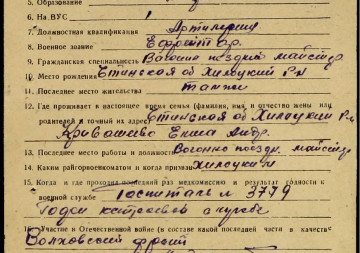 5. Образование
6. На ВУС 1
7. Должностная квалификация Артилерия
8. Военное звание Ефрейтор
9. Гражданская специальность
10. Место рождения Хилоцкий Р-н
11. Последнее место жительства там-же
12. Где проживает в настоящее время семья (фамилия, имя, и отчество жены или
родителей и точный их адрес об Хилоцкий Р-н
Андр.
13. Последнее место работы и должность
14. Каким райгорвоенкоматом и когда призван Хилоцким
15. Когда и где проходил последний раз медкомиссию и результат годности к
военной службе Госпиталь 3779
Годен к строевой службе
16. Участие в Отечественной войне (в составе какой последней части в качестве
Волховский фронт